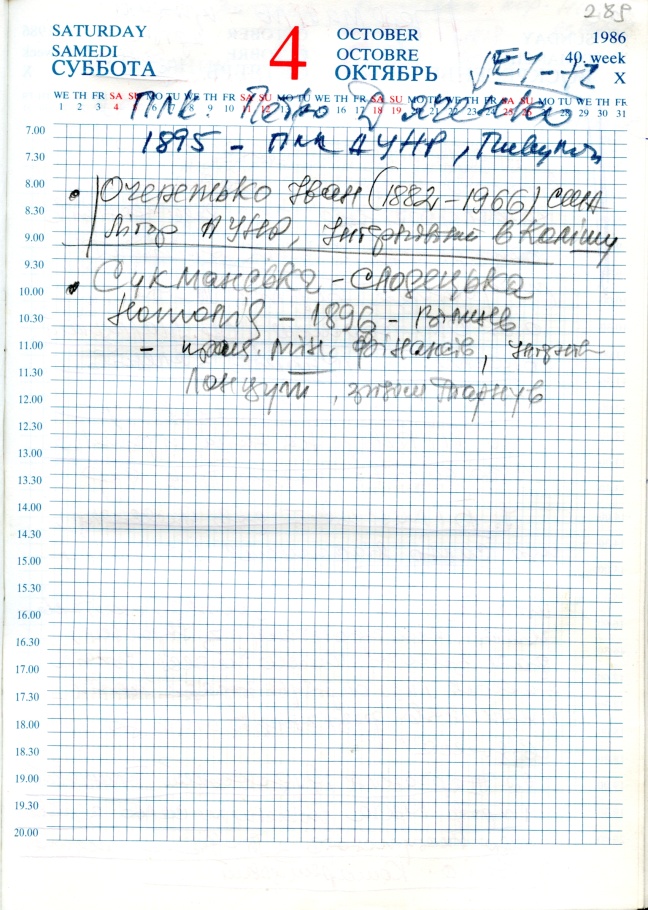 289
SATURDAY
SAMEDI
СУББОТА
4
OCTOBER
OCTOBRE
ОКТЯБРЬ
1986
40. week
X
√ЕУ-72
WE TH FR SA SU MO TU WE TH FR SA SU MO TU WE TH FR SA SU MO TU WE TH FR SA SU MO TU WE TH FR
1 2 3 4 5 6 7 8 9 10 11 12 13 14 15 16 17 18 19 20 21 22 23 24 25 26 27 28 29 30 31
Плк. Петро Дяченко
1895 - плк АУНР,
• Очеретько Іван (1882-1966) США
АУНР, в Калішу
• Сукмансвка-Слодецька
Наталія - 1896 -
- прац. мін. фінансів,
Ланцут,
7.00
7.30
8.00
8.30
9.00
9.30
10.00
10.30
11.00
11.30
12.00
12.30
13.00
13.30
14.00
14.30
15.00
15.30
16.00
16.30
17.00
17.30
18.00
18.30
19.00
19.30
20.00